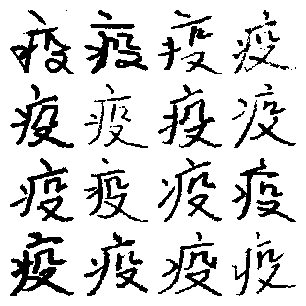 疫疫疫疫
疫疫疫疫
疫疫疫疫
疫疫疫疫